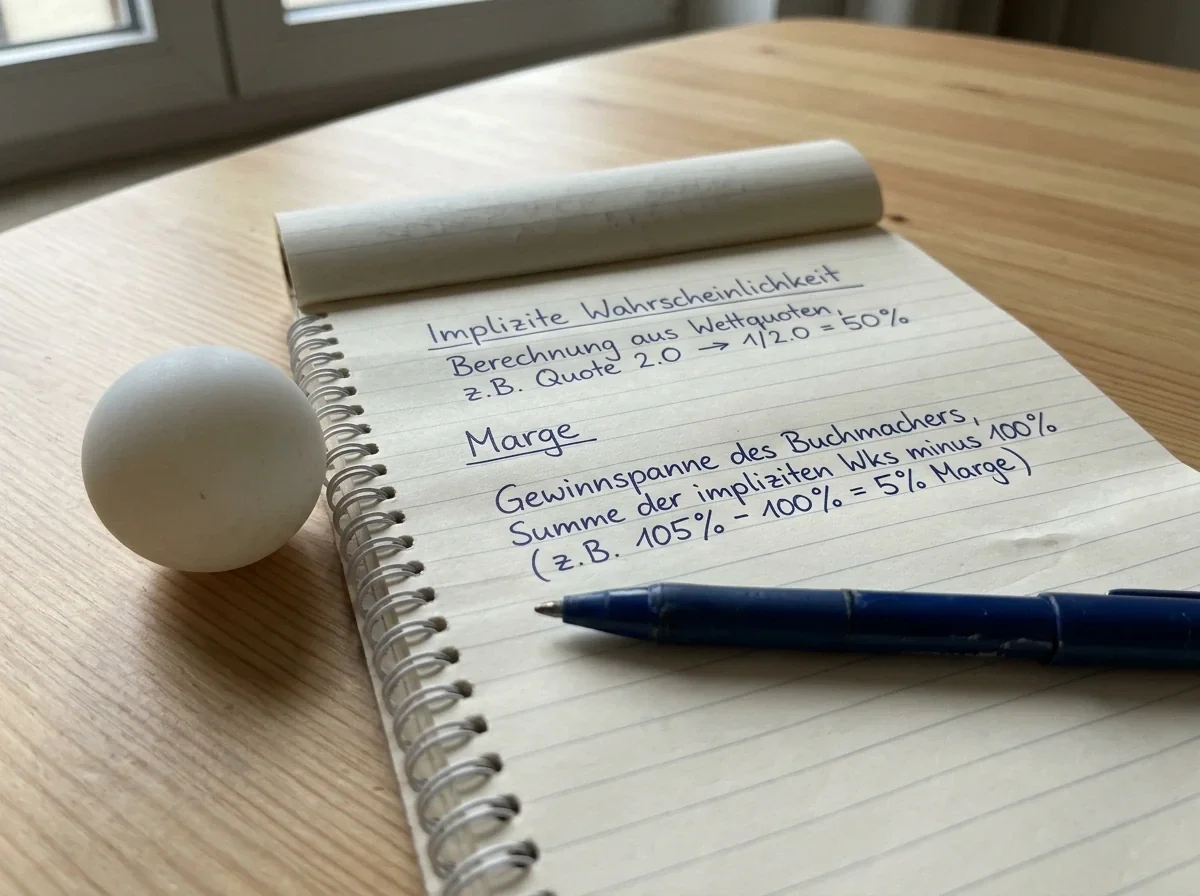 Implizite Wahrscheinlichkeit
Berechnung aus Wettquoten,
z.B. Quote 2.0 → 1/2.0 = 50%
Marge
Gewinnspanne des Buchmachers,
Summe der impliziten Wks minus 100%
(z.B. 105% - 100% = 5% Marge)